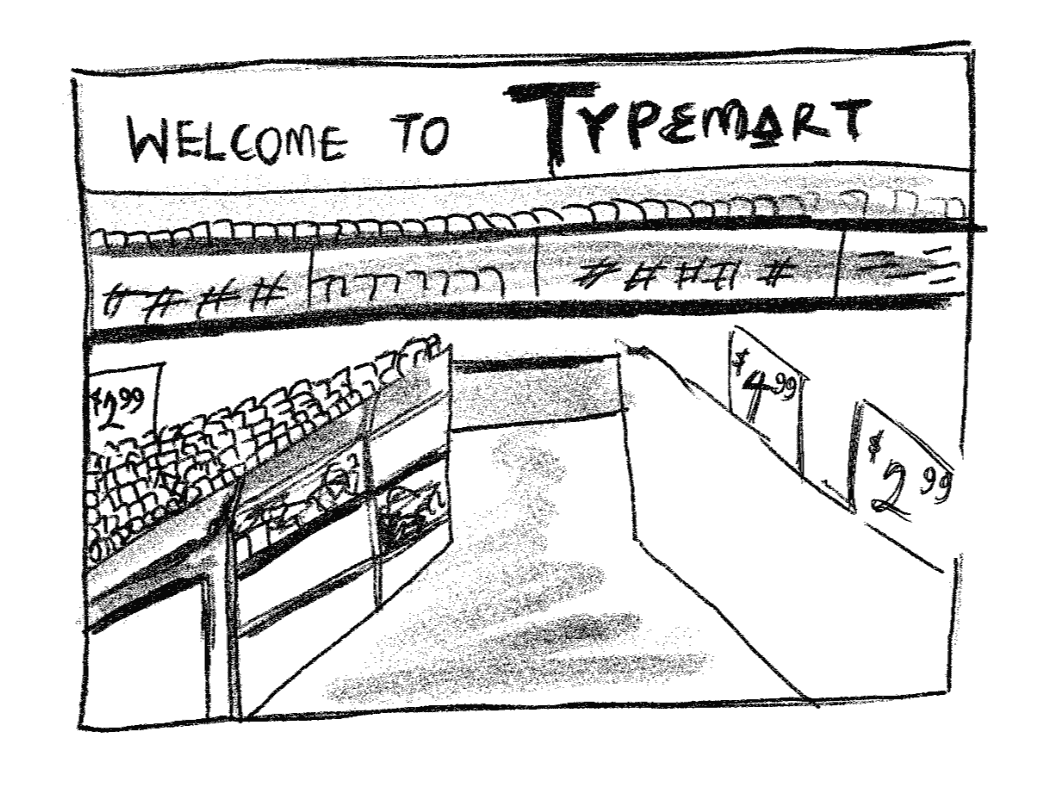 WELCOME TO TYPEMART
$2.99
$4.99
$2.99